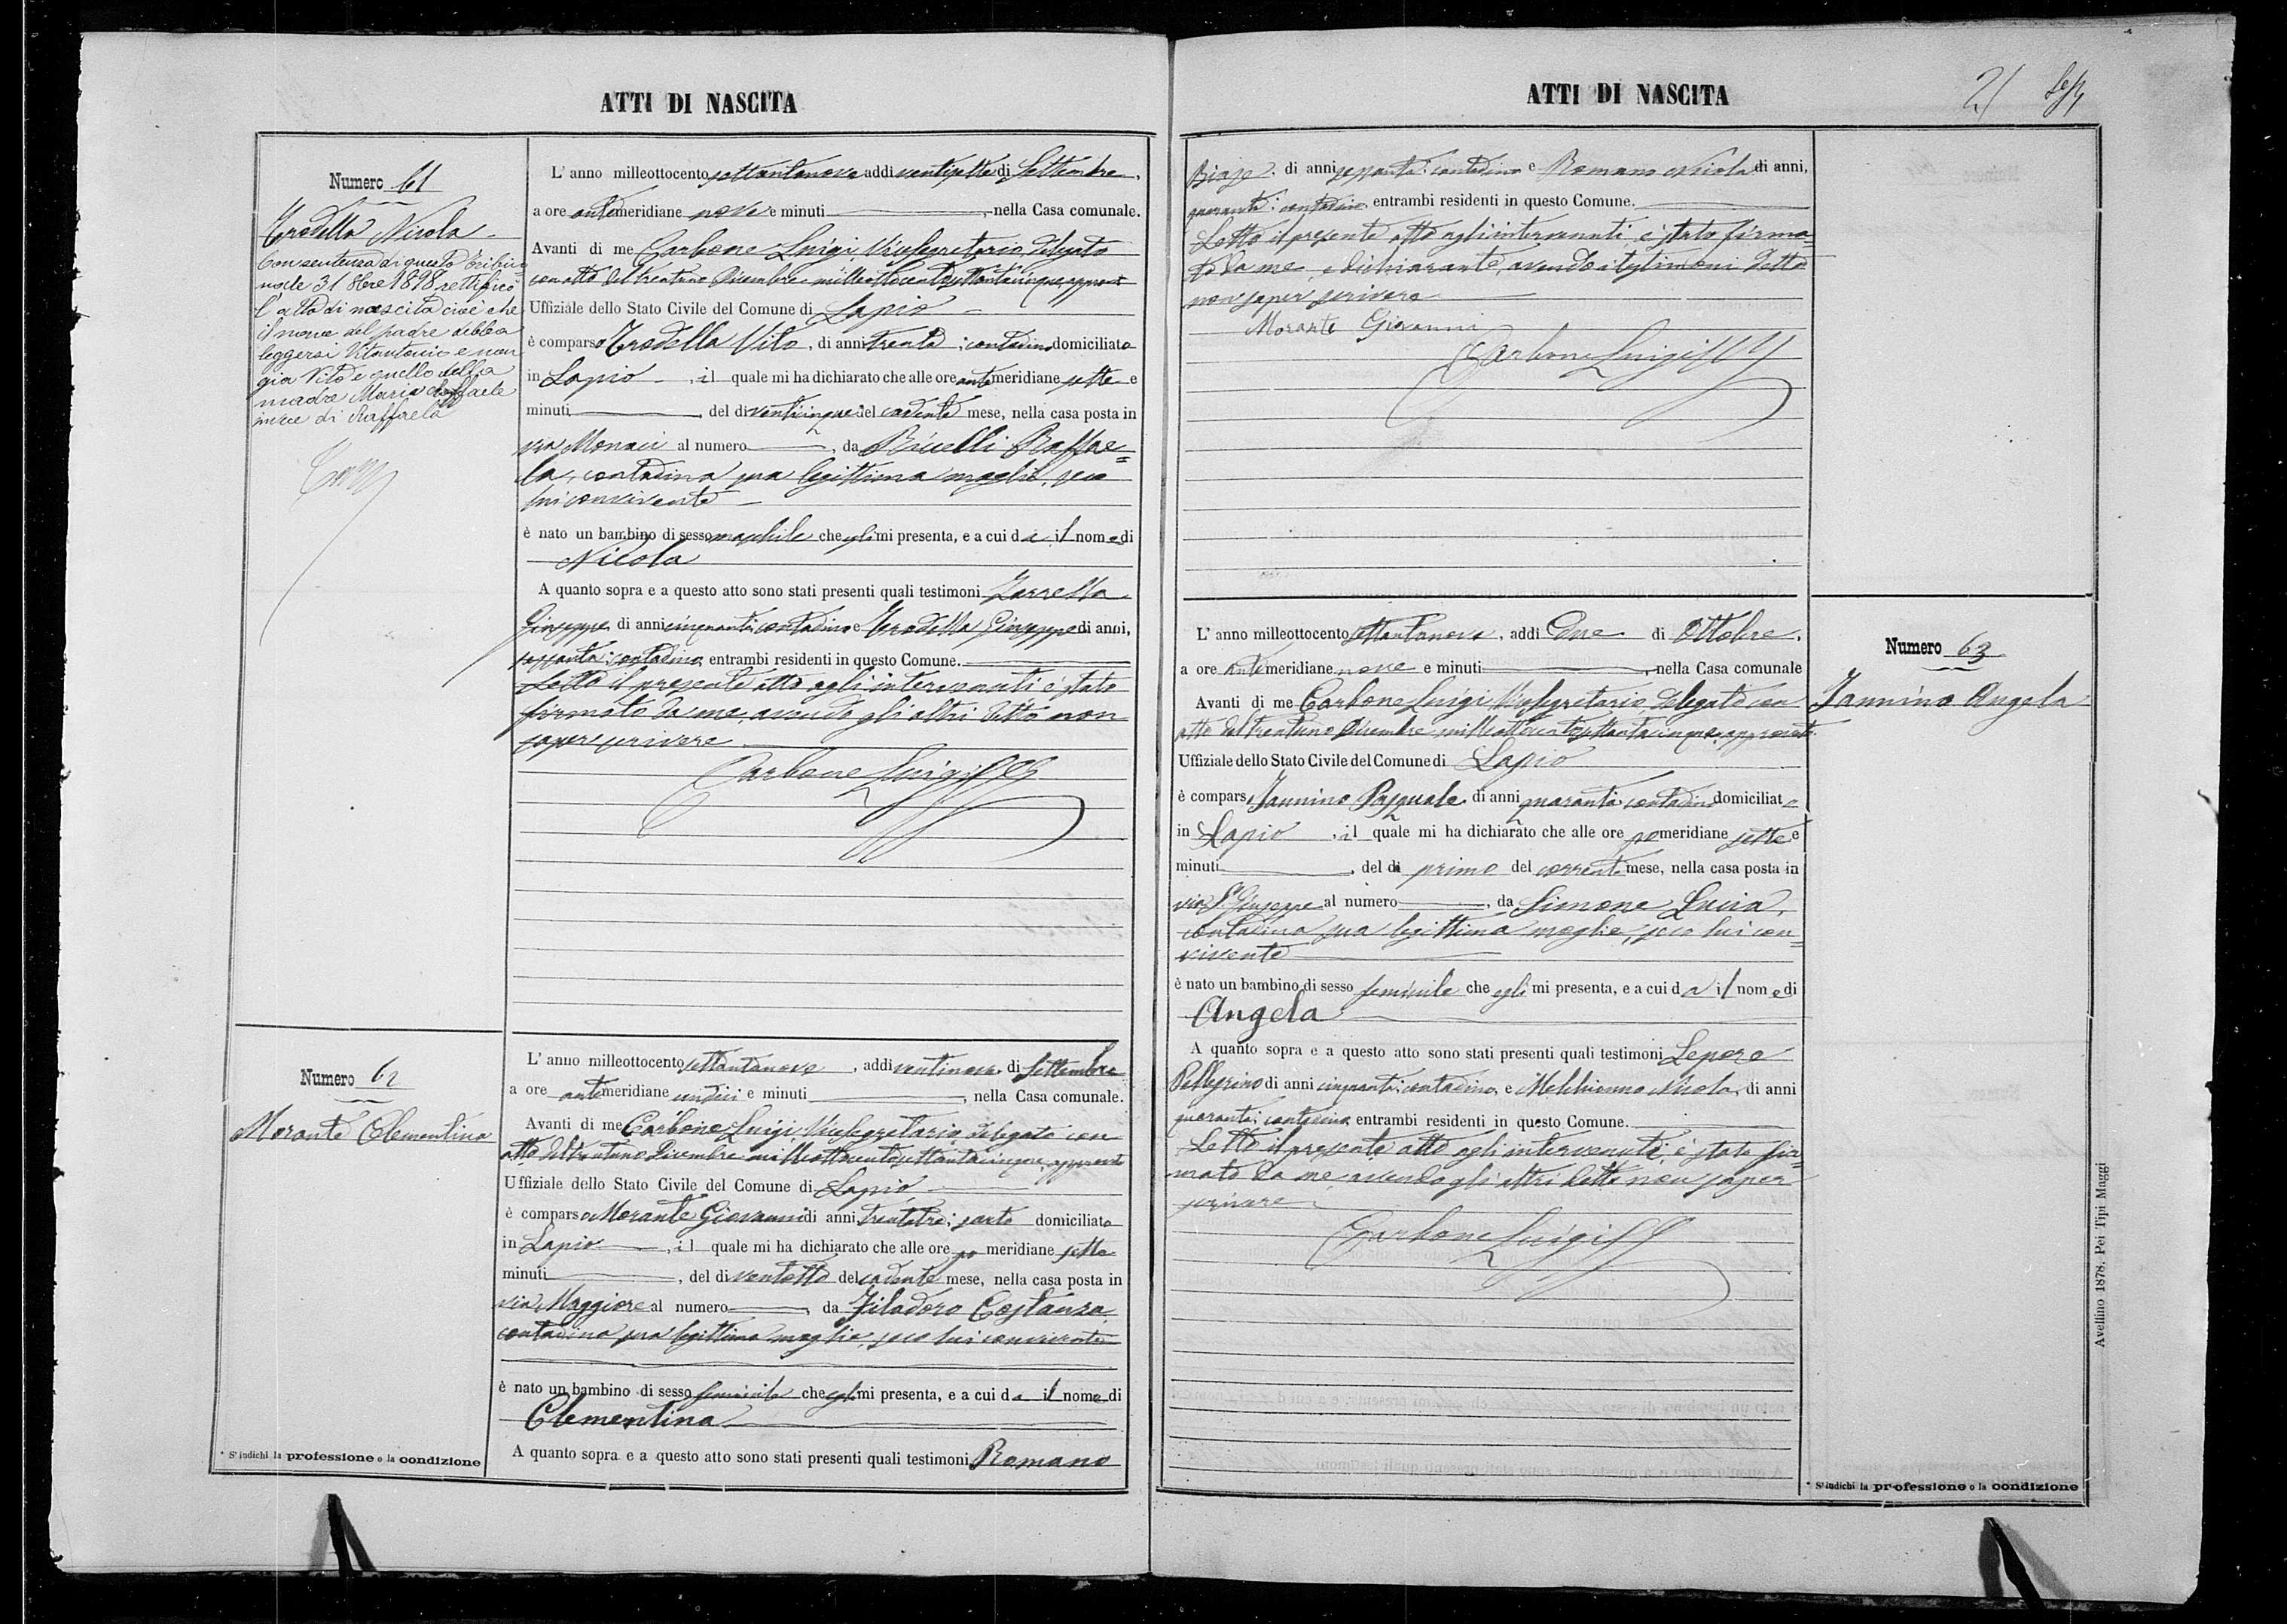 ATTI DI NASCITA
Numero 61
Trodella Nicola
Con sentenza di questo Tribu
nale 31 8bre 1898 rettificò
l'atto di nascita cioè che
il nome del padre debba
leggersi Vitantonio e non
già Vito e quello della
madre Maria Raffaele
invece di Raffaela
L' anno milleottocento settantanove addì ventisette di Settembre,
a ore antemeridiane nove e minuti, nella Casa comunale.
Avanti di me Carbone Luigi Vicesegretario Delegato
con atto del trentuno Dicembre milleottocentosettantacinque approvato
Uffiziale dello Stato Civile del Comune di Lapio
è comparso Trodella Vito, di anni trenta; contadino domiciliato
in Lapio, il quale mi ha dichiarato che alle ore antemeridiane sette e
minuti, del dì venticinque del cadente mese, nella casa posta in
via Monaci al numero, da Ricelli Raffae=
la, contadina sua legittima moglie, seco
lui convivente
è nato un bambino di sesso maschile che egli mi presenta, e a cui da il nome di
Nicola
A quanto sopra e a questo atto sono stati presenti quali testimoni Zarrella
Giuseppe di anni cinquanta contadino e Trodella Giuseppe di anni,
sessanta; contadino, entrambi residenti in questo Comune.
Letto il presente atto agli intervenuti è stato
firmato da me avendo gli altri detto non
sapere scrivere
Carbone Luigi
Numero 62
Morante Clementina
L' anno milleottocento settantanove, addì ventinove di Settembre
a ore antemeridiane undici e minuti, nella Casa comunale.
Avanti di me Carbone Luigi Vicesegretario Delegato con
atto del trentuno Dicembre milleottocentosettantacinque, approvato
Uffiziale dello Stato Civile del Comune di Lapio
è comparso Morante Giovanni di anni trentatre; sarto domiciliato
in Lapio, il quale mi ha dichiarato che alle ore pomeridiane sette
minuti, del dì ventotto del cadente mese, nella casa posta in
via Maggiore al numero, da Filadoro Costanza
contadina sua legittima moglie, seco lui convivente
è nato un bambino di sesso feminile che egli mi presenta, e a cui da il nome di
Clementina
A quanto sopra e a questo atto sono stati presenti quali testimoni Romano
* S'indichi la professione o la condizione
ATTI DI NASCITA
21
Biase di anni sessanta contadino e Romano Nicola di anni,
quaranta; contadino entrambi residenti in questo Comune.
Letto il presente atto agli intervenuti è stato firma=
to da me e dichiarante, avendo i testimoni detto
non saper scrivere
Morante Giovanni
Carbone Luigi
Numero 63
Jannino Angela
L' anno milleottocento settantanove, addì due di Ottobre,
a ore antemeridiane nove e minuti, nella Casa comunale
Avanti di me Carbone Luigi Vicesegretario Delegato con
atto del trentuno Dicembre milleottocentosettantacinque approvato
Uffiziale dello Stato Civile del Comune di Lapio
è comparso Jannino Pasquale di anni quaranta contadino domiciliato
in Lapio, il quale mi ha dichiarato che alle ore pomeridiane sette e
minuti, del dì primo del corrente mese, nella casa posta in
via S. Giuseppe al numero, da Simone Lucia,
contadina sua legittima moglie, seco lui con=
vivente
è nato un bambino di sesso feminile che egli mi presenta, e a cui da il nome di
Angela
A quanto sopra e a questo atto sono stati presenti quali testimoni Lepore
Pellegrino di anni cinquanta; contadino, e Melchionno Nicola, di anni
quaranta; contadino entrambi residenti in questo Comune.
Letto il presente atto agli intervenuti, è stato fir=
mato da me avendo gli altri detto non saper
scrivere
Carbone Luigi
* S'indichi la professione o la condizione
Avellino 1878. Pei Tipi Maggi